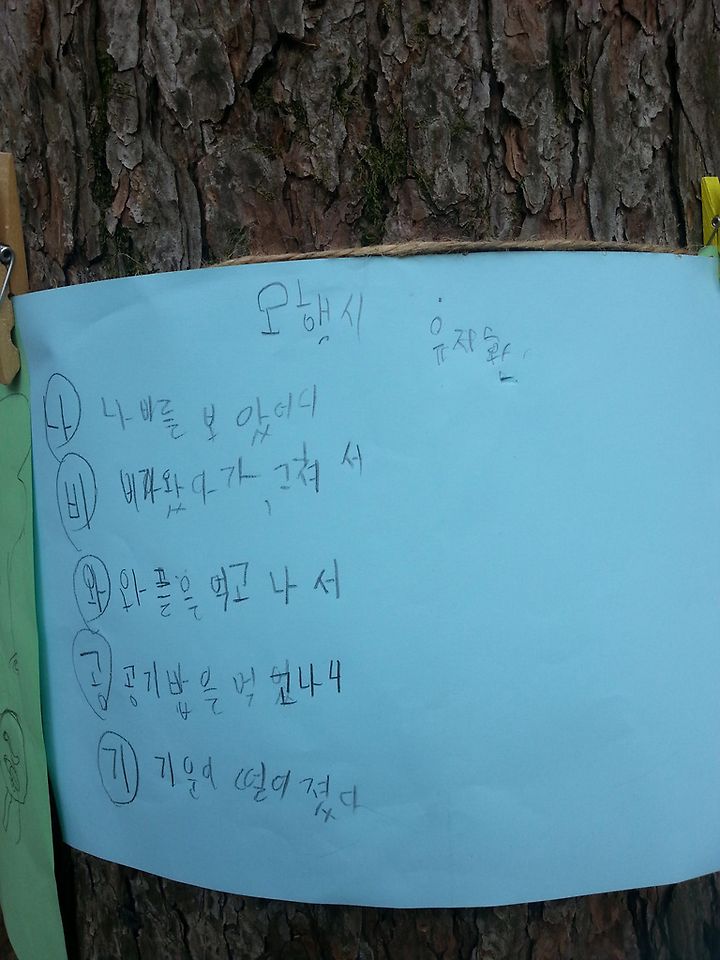 오행시 유자환
나 나비를 보았어디
비 비가왔다가, 그쳐서
와 와플을 먹고 나서
공 공기밥을 먹었나
기 기운이 떨어졌다